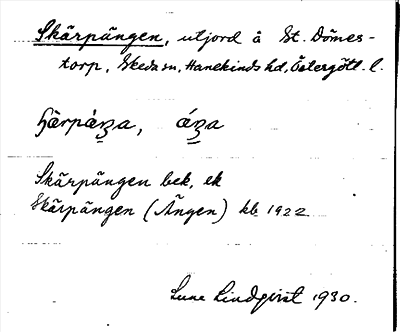 Skärpängen, utjord å St. Dömes-
torp, Skeda sn, Hanekinds hd, Östergötl. l.
Skärpängen bek, ek
Skärpängen (Ängen) kb 1922
Sune Lindqvist 1930.